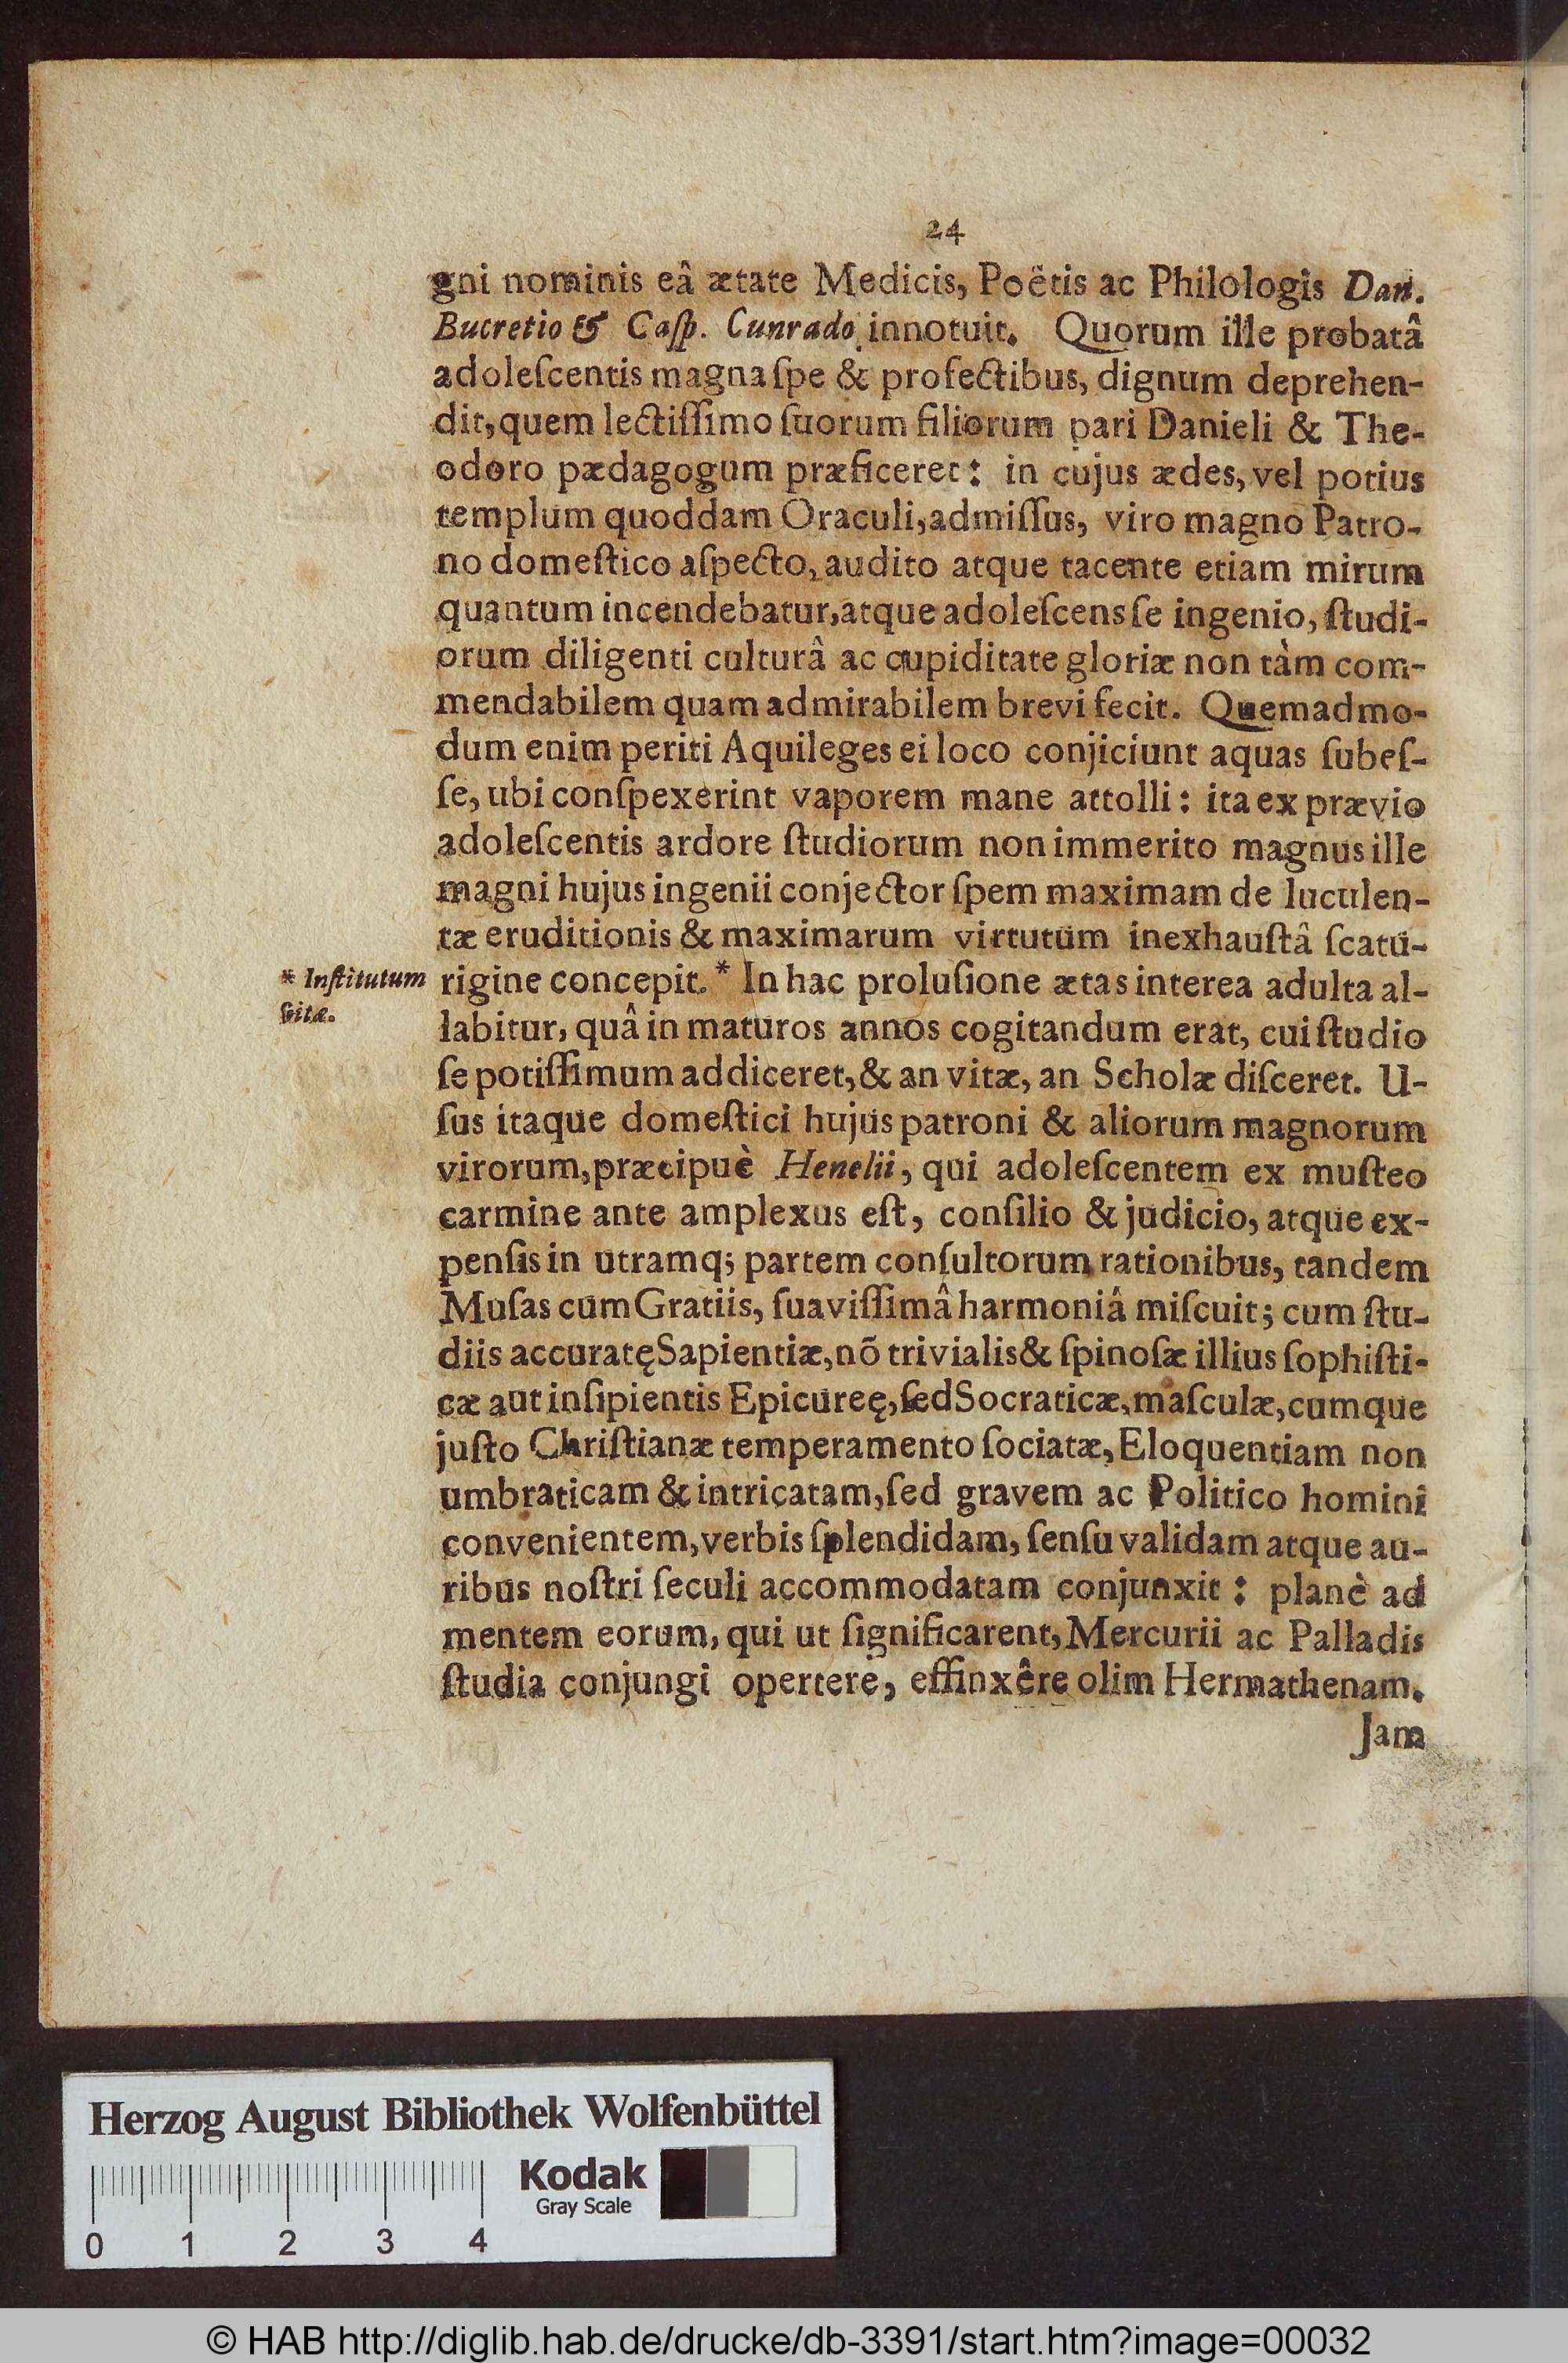 24
gni nominis eâ ætate Medicis, Poëtis ac Philologis Dan.
Bucretio & Caſp. Cunrado innotuit. Quorum ille probatâ
adoleſcentis magna ſpe & profectibus, dignum deprehen-
dit, quem lectiſſimo ſuorum filiorum pari Danieli & The-
odoro pædagogum præficeret: in cujus ædes, vel potius
templum quoddam Oraculi, admiſſus, viro magno Patro-
no domeſtico aſpecto, audito atque tacente etiam mirum
quantum incendebatur, atque adoleſcens ſe ingenio, ſtudi-
orum diligenti culturâ ac cupiditate gloriæ non tàm com-
mendabilem quam admirabilem brevi fecit. Quemadmo-
dum enim periti Aquileges ei loco conjiciunt aquas ſubeſ-
ſe, ubi conſpexerint vaporem mane attolli: ita ex prævio
adoleſcentis ardore ſtudiorum non immerito magnus ille
magni hujus ingenii conjector ſpem maximam de luculen-
tæ eruditionis & maximarum virtutum inexhauſtâ ſcatu-
* Inſtitutum rigine concepit. * In hac proluſione ætas interea adulta al-
vitæ. labitur, quâ in maturos annos cogitandum erat, cui ſtudio
ſe potiſſimum addiceret, & an vitæ, an Scholæ diſceret. U-
ſus itaque domeſtici hujus patroni & aliorum magnorum
virorum, præcipuè Henelii, qui adoleſcentem ex muſteo
carmine ante amplexus eſt, conſilio & judicio, atque ex-
penſis in utramq; partem conſultorum rationibus, tandem
Muſas cum Gratiis, ſuaviſſimâ harmoniâ miſcuit; cum ſtu-
diis accuratę Sapientiæ, nõ trivialis & ſpinoſæ illius ſophiſti-
cæ aut inſipientis Epicureę, ſed Socraticæ, maſculæ, cumque
juſto Chriſtianæ temperamento ſociatæ, Eloquentiam non
umbraticam & intricatam, ſed gravem ac Politico homini
convenientem, verbis ſplendidam, ſenſu validam atque au-
ribus noſtri ſeculi accommodatam conjunxit: planè ad
mentem eorum, qui ut ſignificarent, Mercurii ac Palladis
ſtudia conjungi opertere, effinxêre olim Hermathenam.
Jam
Herzog August Bibliothek Wolfenbüttel
Kodak
Gray Scale
0 1 2 3 4
© HAB http://diglib.hab.de/drucke/db-3391/start.htm?image=00032